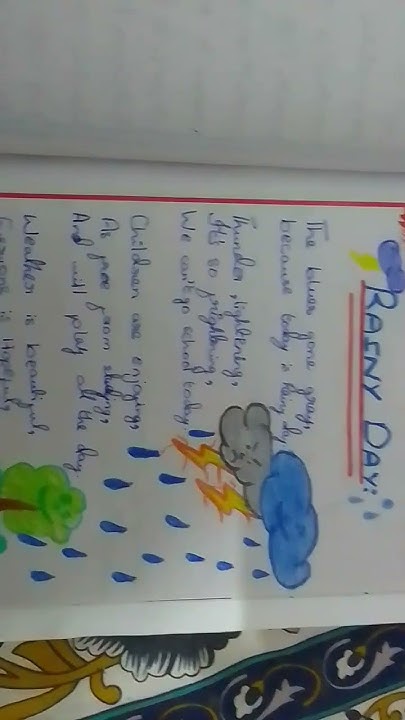 RAINY DAY:
The blues gone gray,
because today is Rainy day
Thunder, lightening,
It's so frightening,
We can't go school today.
Children are enjoying,
As free from studying,
And will play all the day.
Weather is beautiful,
is Hopeful,